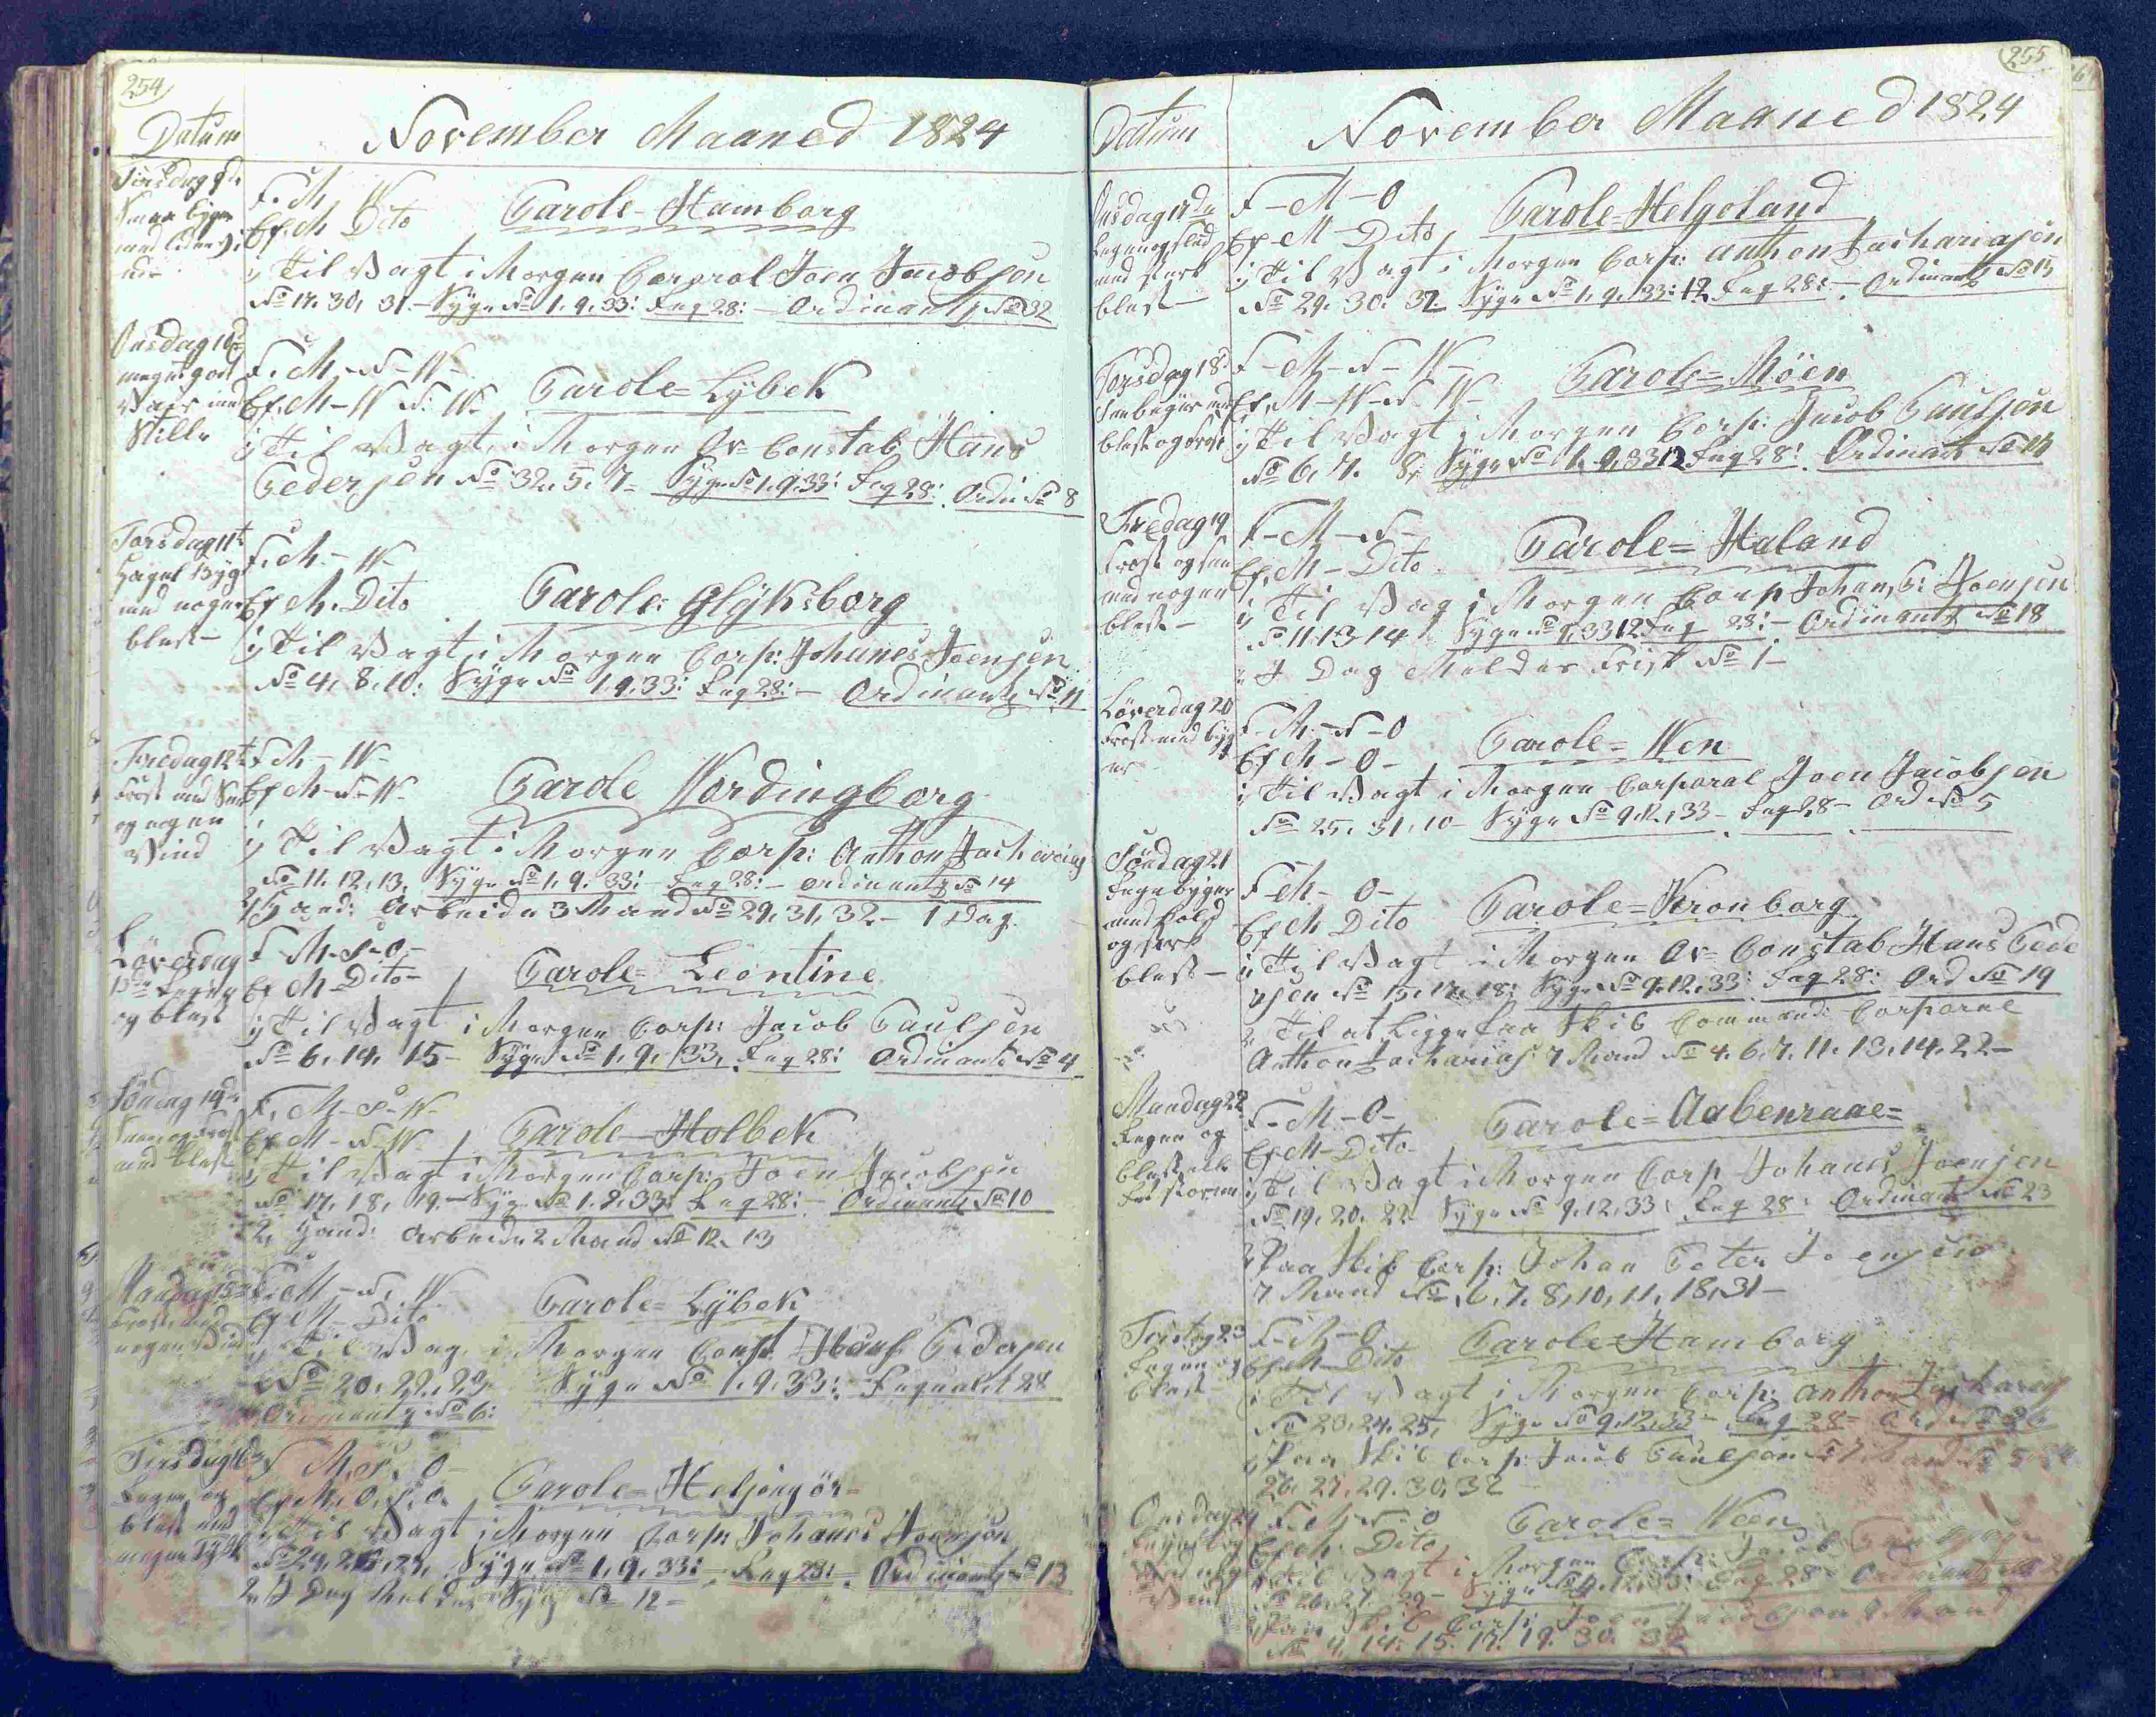 254
Datum
November Maaned 1824
Tirsdag 9de
F. M. W
Ef. M Dito Parole - Hamborg
1, Til Vagt i Morgen Corporal Joen Jacobsen
No 17. 30, 31. - Syge No 1, 9, 33: Fug 28: - Ordinants No 32
Onsdag 10de
meget godt
Veir med
Stille
F. M. - N - W -
Ef. M - W N. W. Parole = Lybek
1, Til Vagt i Morgen Ov= Constab Hans
Pedersen No 32, 5, 7 - Syge No 1, 9, 33: Fug 28: Ordi No 8
Torsdag 11te
Hagel Byg
med nogen
blest -
F. M - W -
Ef M. Dito Parole: Glyksborg
1, Til Vagt i Morgen Corp: Johanes Joensen
No 4, 8, 10: Syge No 1, 9, 33: Fug 28: - Ordinants No 11
Fredag 12te
Frost med Sne
og nogen
Vind
F M - W -
Ef M - N - W - Parole Wordingborg
1, Til Vagt i Morgen Corp: Anthon Zacharias
No 11, 12, 13, Syge No 1, 9, 33: - Fug 28: - Ordinants No 14
2, Haand: Arbeide 3 Mand No 29, 31, 32 - 1 Dag.
Löverdag
13de Regn
og blest
F - M - S - O -
Ef M - Dito - Parole = Leontine
1, Til Vagt i Morgen Corp: Jacob Paulsen
No 6, 14, 15 - Syge No 1, 9, 33, Fug 28: Ordinants No 4
Söndag 14de
Sne og Frost
med blest
F. M - S - W -
Ef M - N - W Parole - Holbek
1, Til Vagt i Morgen Corp: Joen Jacobsen
No 17, 18, 19. - Syge No 1. 9, 33: Fug 28: - Ordinants No 10
2, Haand: Arbeide 2 Mand No 12. 13
Mandag 15de
Frost med
nogen Vind
F. M - N. W
Ef M - Dito Parole = Lybek
1, Til Vagt i Morgen Const Hans Pedersen
No 20, 22, 23 Syge No 1, 9, 33: Fugualt 28
Ordinants No 6:
Tirsdag 16de
Regn og
blest med
F M. S. O -
Ef M. O. S. O. Parole = Helsingör =
1, Til Vagt i Morgen Corp: Johanes Joensen
No 24, 26, 27, Syge No 1, 9, 33: - Fug 28: - Ordinants No 13
2, I Dag Melder Syg No 12 =
255
Datum
November Maaned 1824
Onsdag 17de
Regn og Slud
med sterk
blest -
F - M - O
Ef - M - Dito Parole = Helgoland
1, Til Vagt i Morgen Corp: Anthon Zachariasen
No 29. 30. 32 Syge No 1, 9, 33: 12 Fug 28: - Ordinants No 15
Torsdag 18
Sne bygur med
blest og Frost
F - M - N - W -
Ef. M - W - N - W - Parole = Möen
1, Til Vagt i Morgen Corp: Jacob Paulsen
No 6, 7. 8, Syge No 1. 9, 33 12 Fug 28: Ordinants No 13
Fredag 19
Frost og Sne
med nogen
blest -
F - M - N -
Ef. M - Dito Parole = Haland
1, Til Vag i Morgen Corp Johan P: Joensen
No 11. 13 14 Syge No 9, 33 12 Fug 28: - Ordinants No 18
2, I Dag Melder Frisk No 1 -
Löverdag 20
Frost med byg
er
F - M. - N - O
Ef M - O - Parole = Wen
1, Til Vagt i Morgen Corporal Joen Jacobsen
No 25, 31, 10 - Syge No 9, 12, 33 - Fug 28 - Ord No 5
Söndag 21
Regn bygur
med Kold
og sterk
blest -
F - M - O -
Ef M Dito Parole = Kronborg
1, Til Vagt i Morgen Ov= Constab Hans Pede
rsen No 15, 17, 18: Syge No 9, 12, 33: Fug 28: Ord No 19
2, Til at Ligge Paa Skib Commande Corporal
Anthon Zacharias: 7 Mand No 4. 6. 7. 11. 13. 14. 22 -
Mandag 22
Regn og
blest
F - M - O -
Ef M - Dito - Parole = Aabenraae =
1, Til Vagt i Morgen Corp Johanes Joensen
No 19, 20, 22 - Syge No 9, 12, 33: Fug 28: Ordinants No 23
2, Paa Skib Corp: Johan Peter Joensen
7 Mand No 6, 7, 8, 10, 11, 18, 31 -
Tirsdag 23
Regn og
blest -
F - M - O
Ef M - Dito Parole = Hamborg
1, Til Vagt i Morgen Corp: Anthon Zacharias
No 23, 24, 25, Syge No 9, 12, 33 - Fug 28 = Ord No 26
2, Paa Skib Corp: Jacob Paulsen 7 Mand No 5
26, 27, 29, 30, 32
Onsdag 24
F. M - N - O
Ef M. Dito Parole = Ween
1, Til Vagt i Morgen Corp: Jacob Paulsen
No 26, 27, 29 - Syge No 9, 12, 33: Fug 28 = Ordinants No
2, Paa Skib Corp: Joen Jacobsen 7 Mand
No 4, 14, 15, 17, 19, 30, 32